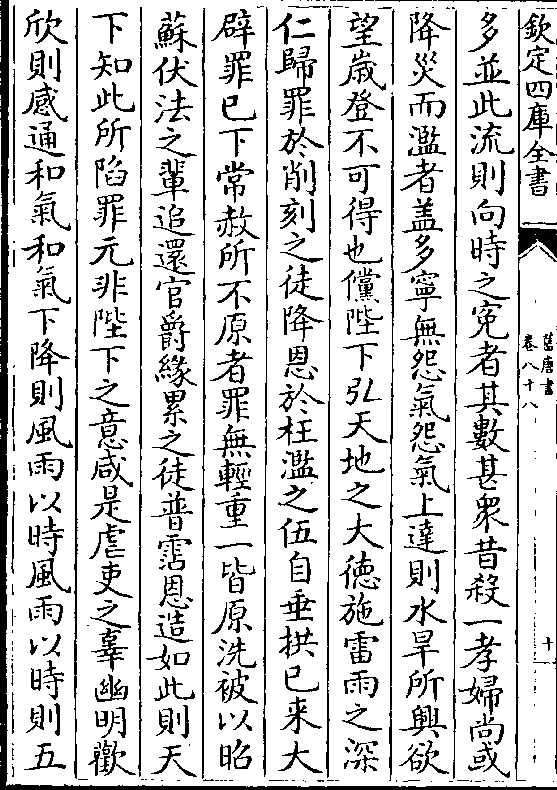 欽定四庫全書
舊唐書
卷八十八
十
多並此流則向時之寃者其數甚衆昔殺一孝婦尚或
降災而濫者盖多寧無怨氣怨氣上達則水旱所興欲
望歳登不可得也儻陛下弘天地之大德施雷雨之深
仁歸罪於削刻之徒降恩於枉濫之伍自垂拱已來大
辟罪已下常赦所不原者罪無輕重一皆原洗被以昭
蘇伏法之輩追還官爵緣累之徒普霑恩造如此則天
下知此所陷罪元非陛下之意咸是虐吏之辜幽明歡
欣則感通和氣和氣下降則風雨以時風雨以時則五